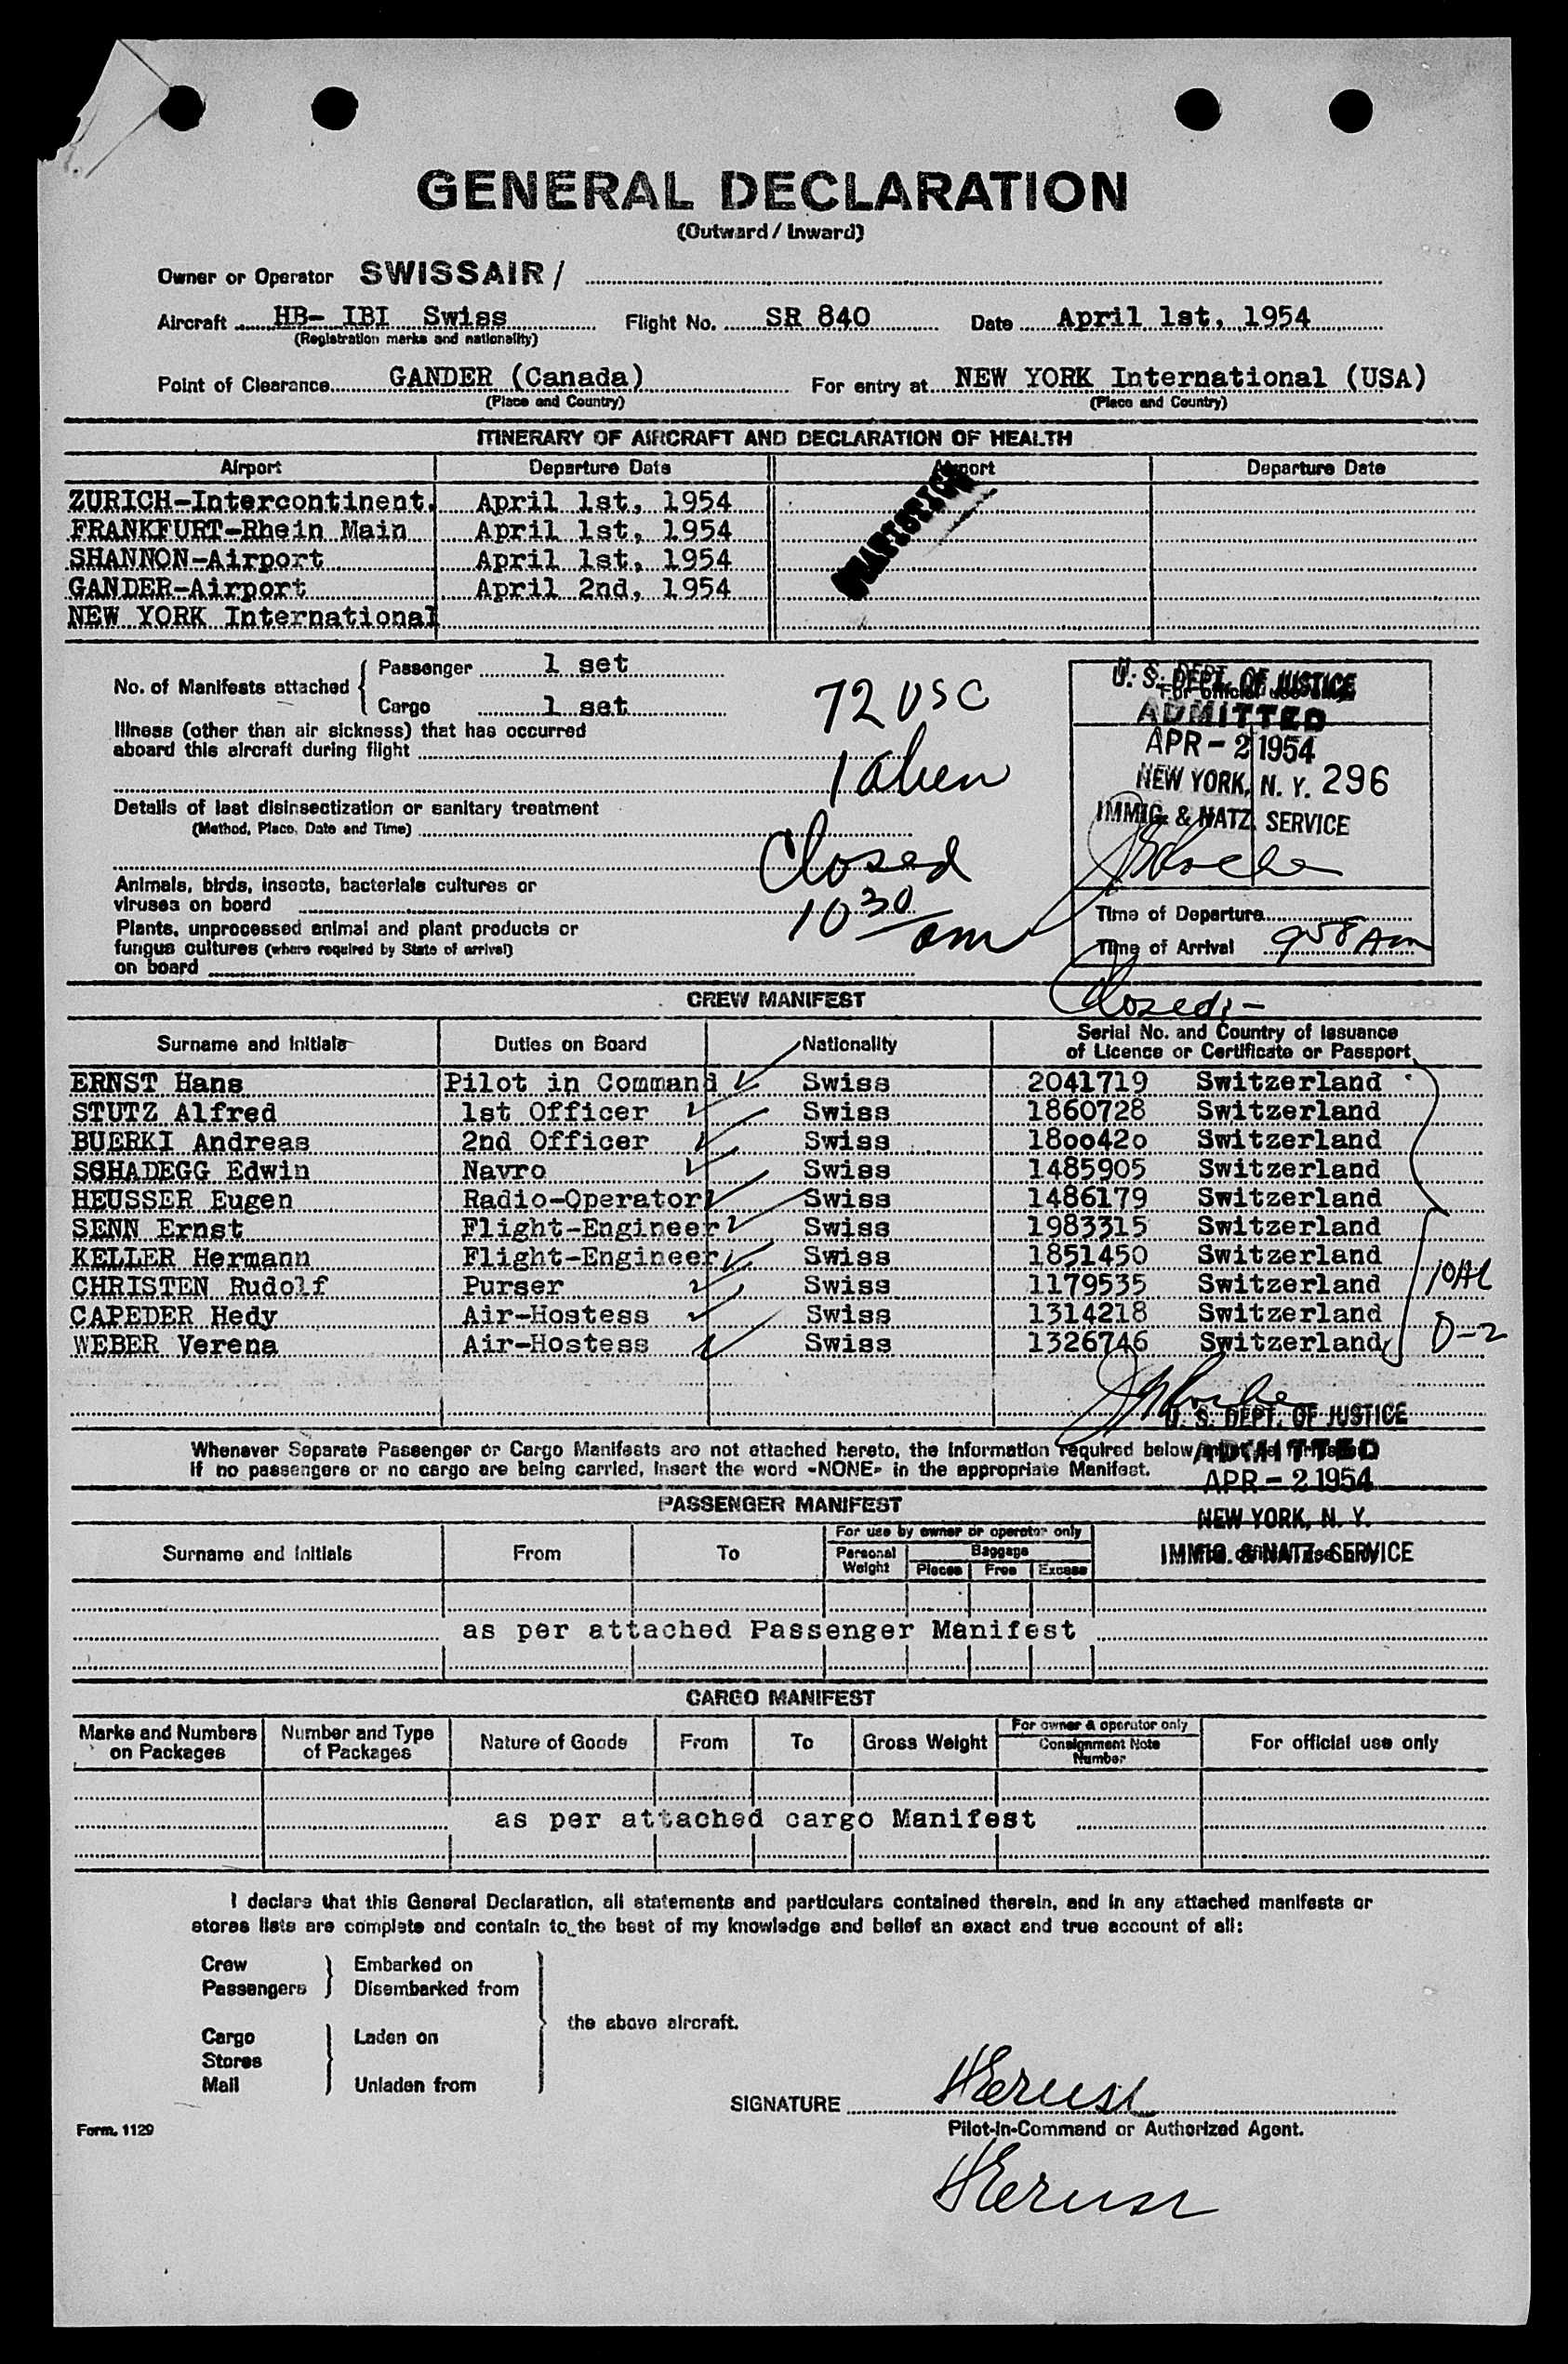 GENERAL DECLARATION
(Outward / Inward)
Owner or Operator SWISSAIR /
Aircraft HB- IBI Swiss Flight No. SR 840 Date April 1st, 1954
(Registration marks and nationality)
Point of Clearance GANDER (Canada) For entry at NEW YORK International (USA)
(Place and Country) (Place and Country)
ITINERARY OF AIRCRAFT AND DECLARATION OF HEALTH
Airport Departure Date Airport Departure Date
ZURICH-Intercontinent. April 1st, 1954
FRANKFURT-Rhein Main April 1st, 1954
SHANNON-Airport April 1st, 1954
GANDER-Airport April 2nd, 1954
NEW YORK International
STATISTICAL
No. of Manifests attached { Passenger 1 set
Cargo 1 set
72 USC
1 alien
Closed
10 30 am
Illness (other than air sickness) that has occurred
aboard this aircraft during flight
Details of last disinsectization or sanitary treatment
(Method, Place, Date and Time)
Animals, birds, insects, bacteriale cultures or
viruses on board
Plants, unprocessed animal and plant products or
fungus cultures (where required by State of arrival)
on board
For official use only
U. S. DEPT. OF JUSTICE
ADMITTED
APR - 2 1954
NEW YORK, N. Y. 296
IMMIG. & NATZ. SERVICE
Time of Departure
Time of Arrival 958 Am
Closed:-
CREW MANIFEST
Surname and Initials Duties on Board Nationality Serial No. and Country of Issuance
of Licence or Certificate or Passport
ERNST Hans Pilot in Command Swiss 2041719 Switzerland
STUTZ Alfred 1st Officer Swiss 1860728 Switzerland
BUERKI Andreas 2nd Officer Swiss 18oo42o Switzerland
SCHADEGG Edwin Navro Swiss 1485905 Switzerland
HEUSSER Eugen Radio-Operator Swiss 1486179 Switzerland
SENN Ernst Flight-Engineer Swiss 1983315 Switzerland
KELLER Hermann Flight-Engineer Swiss 1851450 Switzerland
CHRISTEN Rudolf Purser Swiss 1179535 Switzerland
CAPEDER Hedy Air-Hostess Swiss 1314218 Switzerland
WEBER Verena Air-Hostess Swiss 1326746 Switzerland
D-2
U. S. DEPT. OF JUSTICE
ADMITTED
APR - 2 1954
NEW YORK, N. Y.
IMMIG. & NATZ. SERVICE
Whenever Separate Passenger or Cargo Manifests are not attached hereto, the information required below must be
If no passengers or no cargo are being carried, insert the word -NONE- in the appropriate Manifest.
PASSENGER MANIFEST
Surname and Initials From To For use by owner or operator only
Personal Weight Baggage
Pieces Free Excess
as per attached Passenger Manifest
CARGO MANIFEST
Marks and Numbers on Packages Number and Type of Packages Nature of Goods From To Gross Weight For owner & operator only
Consignment Note Number For official use only
as per attached cargo Manifest
I declare that this General Declaration, all statements and particulars contained therein, and in any attached manifests or
stores lists are complete and contain to the best of my knowledge and belief an exact and true account of all:
Crew Embarked on
Passengers Disembarked from
the above aircraft.
Cargo Laden on
Stores
Mail Unladen from
SIGNATURE HErnst
Pilot-in-Command or Authorized Agent.
HErnst
Form. 1129